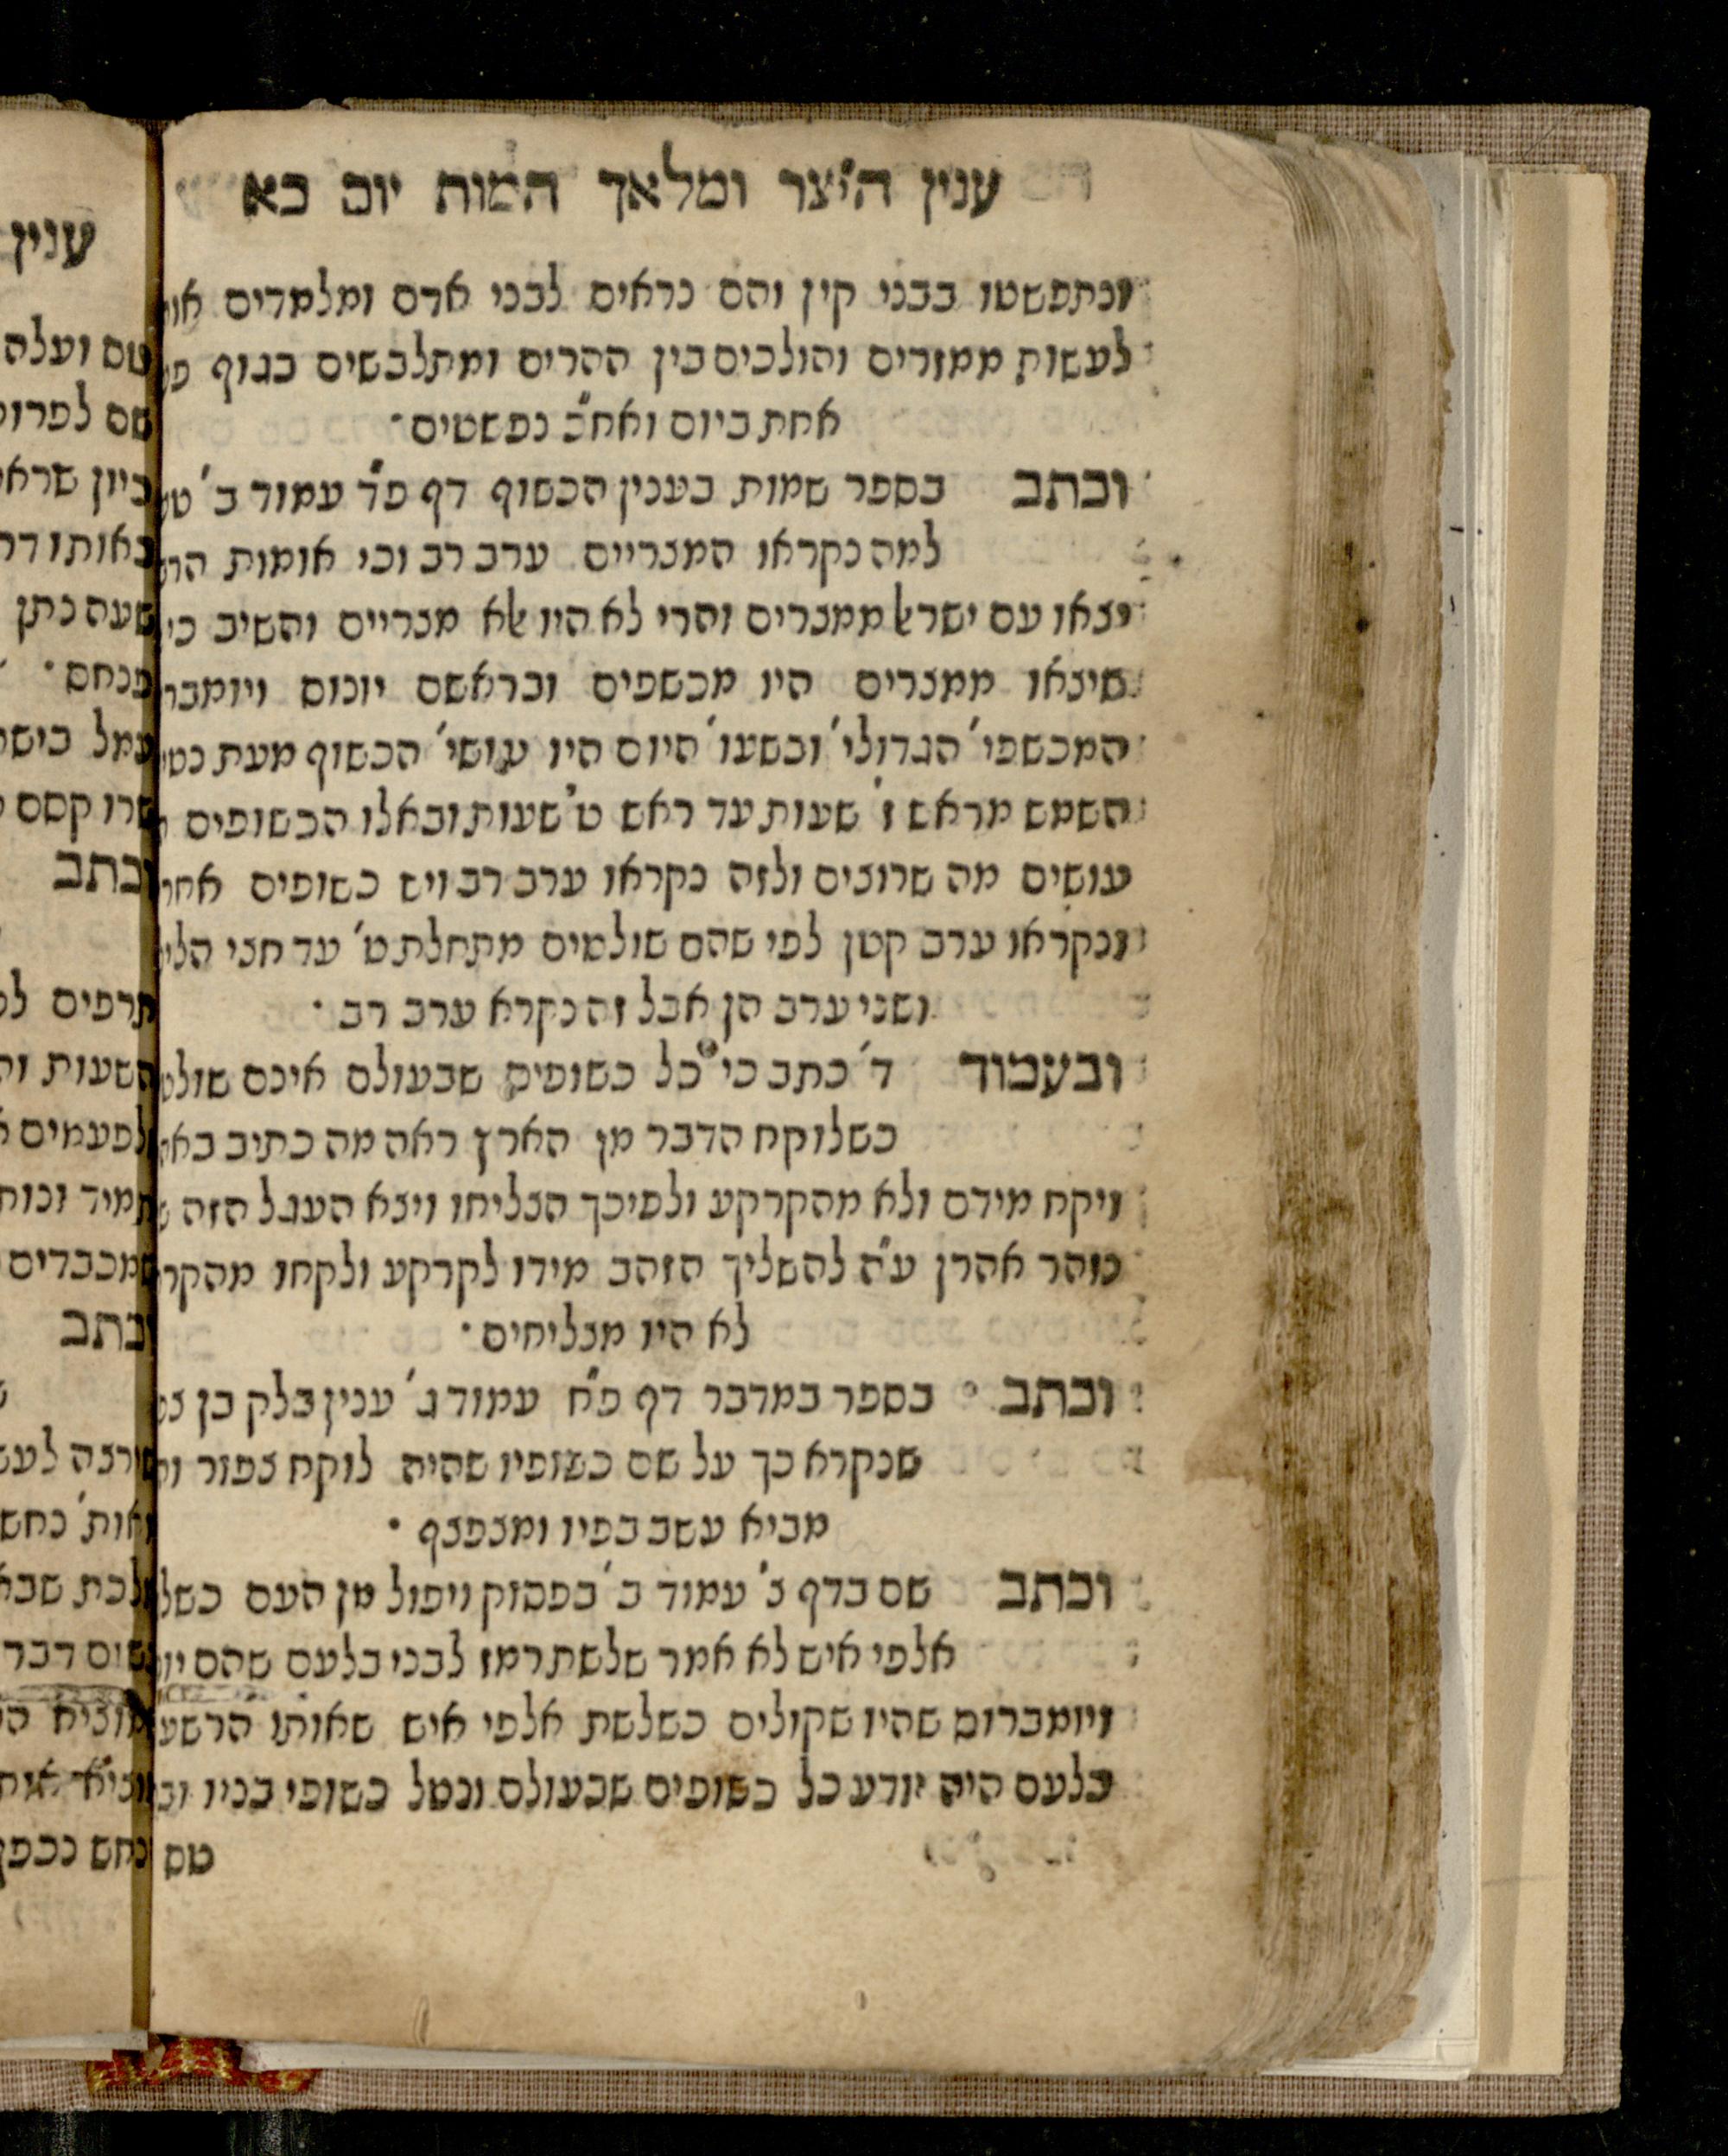 ענין היצר ומלאך המות יום כא
ונתפשטו בבני קין והם נראים לבני אדם ומלמדים
לעשות ממזרים והולכים בין ההרים ומתלבשים בגוף
אחת ביום ואח"כ נפשטים·
וכתב בספר שמות בענין הכשוף דף פ"ד עמוד ב'
למה נקראו המצריים ערב רב וכי אומות
יצאו עם ישראל ממצרים והרי לא היו אלא מצריים והשיב
שיצאו ממצרים היו מכשפים ובראשם יונוס ויומברו
המכשפי' הגדולי' ובשעו' היום היו עושי' הכשוף מעת
השמש מראש ז' שעות עד ראש ט' שעות ובאלו הכשופים
עושים מה שרוצים ולזה נקראו ערב רב ויש כשופים
ונקראו ערב קטן לפי שהם שולטים מתחלת ט' עד חצי
ושני ערב הן אבל זה נקרא ערב רב ·
ובעמוד ד' כתב כי כל כשופים שבעולם אינם
כשלוקח הדבר מן הארץ ראה מה כתיב
ויקח מידם ולא מהקרקע ולפיכך הצליחו ויצא העגל הזה
נזהר אהרן ע"ה להשליך הזהב מידו לקרקע ולקחו
לא היו מצליחים·
וכתב בספר במדבר דף פ"ח עמוד ג' ענין בלק בן
שנקרא כך על שם כשופיו שהיה לוקח צפור
מביא עשב בפיו ומצפצף ·
וכתב שם בדף צ' עמוד ב' בפסוק ויפול מן העם
אלפי איש לא אמר שלשת רמז לבני בלעם שהם
ויומברוס שהיו שקולים כשלשת אלפי איש שאותו הרשע
בלעם היה יודע כל כשופים שבעולם ונטל כשופי בניו
טס
ענין
טס ועלה
שם
כיון
באותו
שעה נתן
פנחס·
עמל
שרו קסם
וכתב
תרפים
השעות
לפעמים
תמיד
מכבדים
וכתב
ורצה
ואות'
שום דבר
מוציא
נחש